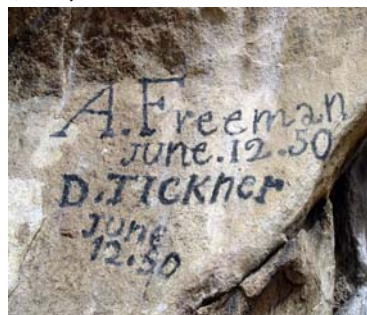 A. Freeman
JUNE. 12. 50
D. TICKNER
JUNE
12. 50